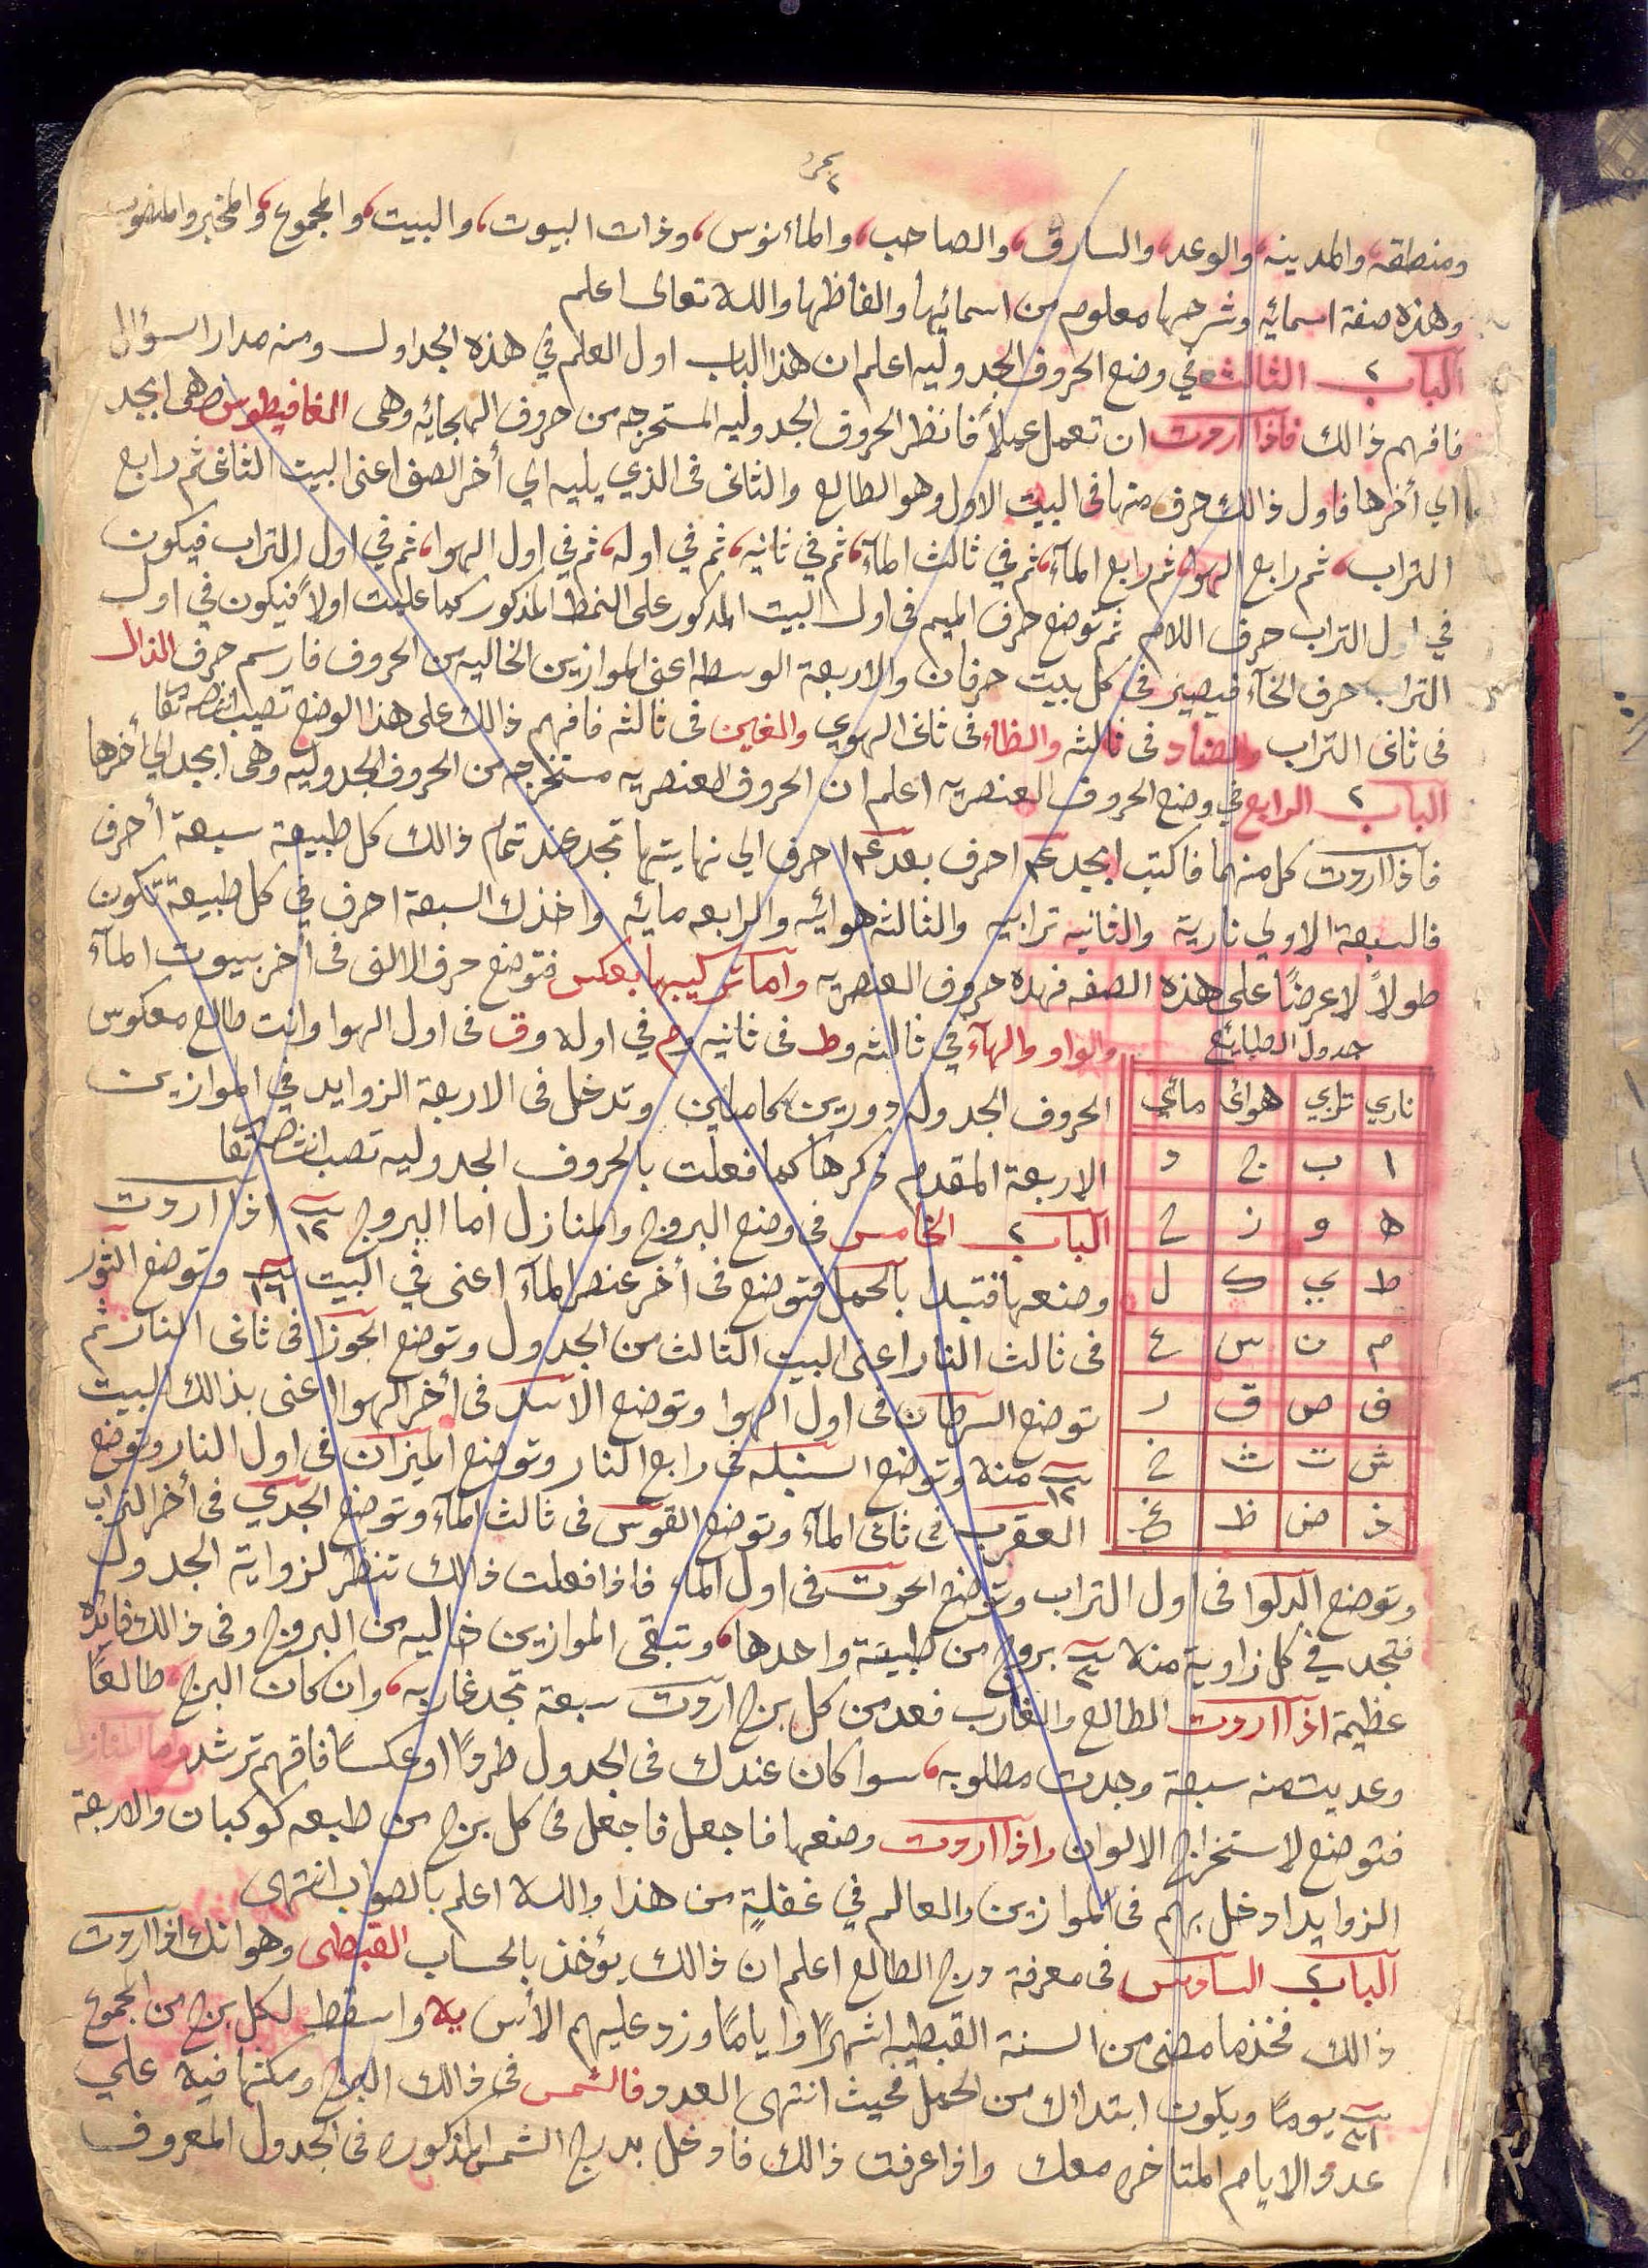 ومنطقه والمدينه والوعد، والسارق، والصاحب، والمأنوس، وذات البيوت، والبيت، والمجموع، والمخبر
وهذه صفة اسمائه وشرحها معلوم من اسمائها والفاظها والله تعالى اعلم
الباب الثالث في وضع الحروف الجدوليه اعلم ان هذا الباب اول العلم في هذه الجداول ومنه مدار السؤال
فافهم ذالك فاذا اردت ان تعمل عملاً فانظر الحروف الجدوليه المستخرجه من حروف الهجائيه وهى الغافيطوس وهى ابجد
الي أخرها فاول ذالك حرف منها فى البيت الاول وهو الطالع والثانى فى الذي يليه الي أخر الصف اعنى البيت الثانى ثم رابع
التراب، ثم رابع الهوا، ثم رابع المآء، ثم في ثالث المآء، ثم في ثانيه، ثم في اوله، ثم في اول الهوا، ثم في اول التراب فيكون
في اول التراب حرف اللام ثم توضع حرف الميم فى اول البيت المذكور على النمط المذكور كما علمت اولاً فيكون في اول
التراب حرف الخآء فيصير فى كل بيت حرفان والاربعة الوسطه اعنى الموازين الخاليه من الحروف فارسم حرف الذال
فى ثانى التراب والضاد فى ثالثه والظاء فى ثانى الهوي والغين فى ثالثه فافهم ذالك على هذا الوضع تصيب انشا
الباب الرابع في وضع الحروف العنصريه اعلم ان الحروف العنصريه مستخرجه من الحروف الجدوليه وهى ابجد الي أخرها
فاذا اردت كل منهما فاكتب ابجد ٤ احرف بعد ٤ احرف الي نهايتها تجد عند تمام ذالك كل طبيعة سبعة أحرف
فالسبعة الاولي نارية والثانيه ترابيه والثالثه هوائيه والرابعه مائيه واخذك السبعة احرف في كل طبيعة تكون
طولاً لا عرضًا على هذه الصفه فهذه حروف العنصريه واما تركيبها بعكس فتوضع حرف الالف فى أخر بيوت المآء
والواو والهآء في ثالثه وط فى ثانيه وم في اوله وق فى اول الهوا وانت طالع معكوس
جدول الطبايع
ناري ترابي هوائ مائي
ا ب ج د
ه و ز ح
ط ي ك ل
م ن س ع
ف ص ق ر
ش ت ث خ
ذ ض ظ غ
الحروف الجدوله دورين كاملين وتدخل فى الاربعة الزوايد في الموازين
الاربعة المقدم ذكرها كما فعلت بالحروف الجدوليه تصب
الباب الخامس فى وضع البروج والمنازل اما البروج ١٢ اذا اردت
وضعها فتبدا بالحمل فتوضع فى أخر عنصر المآء اعنى في البيت ١٦ وتوضع الثور
فى ثالث النار اعنى البيت الثالث من الجدول وتوضع الجوزا فى ثانى النار ثم
توضع السرطان فى اول الهوا وتوضع الأسد فى أخر الهوا اعنى بذالك البيت
١٢ منه وتوضع السنبله فى رابع النار وتوضع الميزان فى اول النار وتوضع
العقرب فى ثانى المآء وتوضع القوس فى ثالث المآء وتوضع الجدي فى أخر التراب
وتوضع الدلوا فى اول التراب وتوضع الحوت فى اول الماء فاذا فعلت ذالك تنظر لزواية الجدول
فتجد في كل زاوية منه ٣ بروج من طبيعة واحدها، وتبقى الموازين خاليه من البروج وفى ذالك فايده
عظيمة اذا اردت الطالع والغارب فعد من كل برج اردت سبعة تجد غاربه، وان كان البرج طالعًا
وعديت منه سبعة وجدت مطلوبه، سوا كان عندك فى الجدول طردًا او عكسًا فافهم ترشد واما المنازل
فتوضع لاستخراج الالوان واذا اردت وضعها فاجعل فاجعل فى كل برج من طبعه كوكبان والاربعة
الزوايد ادخل بهم فى الموازين والعالم في غفلةٍ من هذا والله اعلم بالصواب انتهى
الباب السادس فى معرفة درج الطالع اعلم ان ذالك يؤخذ بالحساب القبطى وهو انك اذا اردت
ذالك فخذ ما مضى من السنة القبطيه اشهرًا واياما وزد عليهم الأس يه واسقط لكل برج من المجموع
يومًا ويكون ابتدائك من الحمل فحيث انتهى العدد فالشمس فى ذالك البرج ومكثها فيه علي
عدد الايام المتاخره معك واذا عرفت ذالك فادخل بدرج الشمس المذكوره فى الجدول المعروف